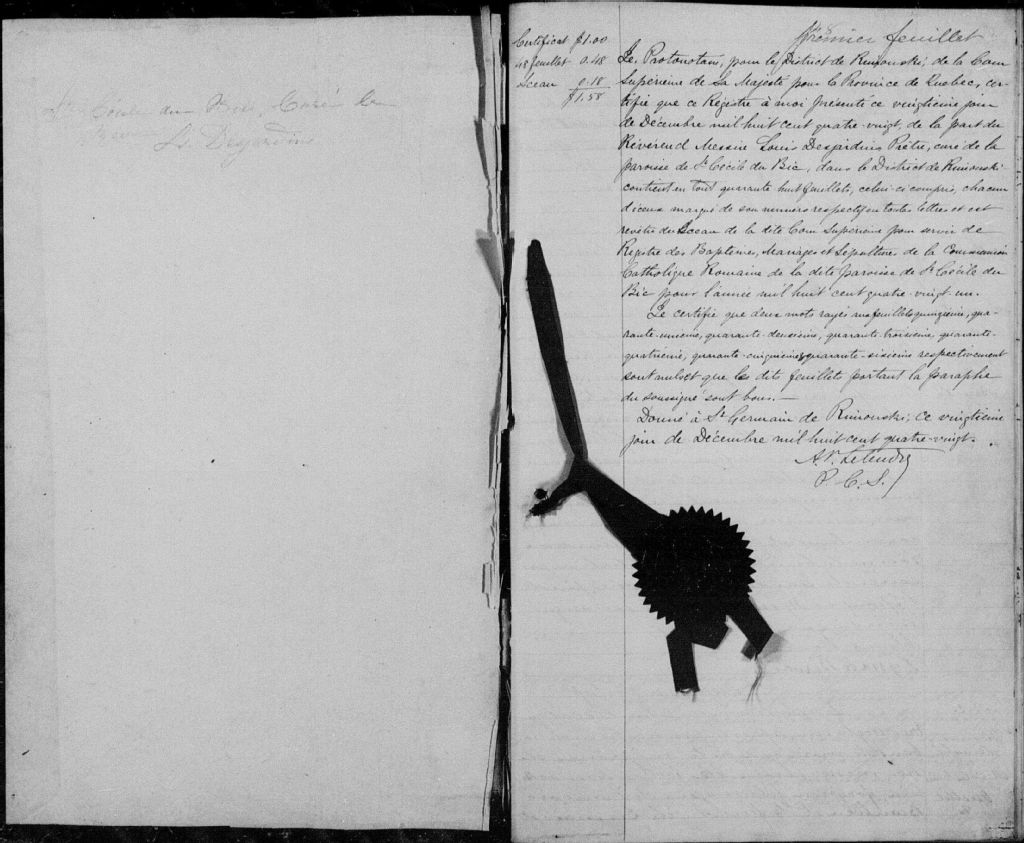 Ste Cécile du Bic, Curé le
L. Desjardins
Certificat $1.00
48 feuillet 0.48
Sceau 0.18
$1,58
Premier feuillet
Le Protonotaire, pour le District de Rimouski, de la Cour
Supérieure de Sa Majesté pour la Province de Quebec, cer-
tifie que ce Régistre à moi présenté ce vingtième jour
de Décembre mil huit cent quatre-vingt, de la part du
Révérend Messire Louis Desjardins Prêtre, curé de la
paroisse de Ste Cécile du Bic, dans le District de Rimouski
contient en tout quarante huit feuillets, celui-ci compris, chacun
d'iceux marqué de son numéro respectif en toutes lettres et est
revêtu du Sceau de la dite Cour Supérieure pour servir de
Régistre des Baptêmes, Mariages et Sépulture de la Communion
Catholique Romaine de la dite paroisse de Ste Cécile du
Bic pour l'année mil huit cent quatre-vingt-un.
Je certifie que deux mots rayés aux feuillets quinzième, qua-
rante-unième, quarante-deuxième, quarante-troisième, quarante-
quatrième, quarante-cinquième & quarante-sixième respectivement
sont nuls et que les dits feuillets portant la paraphe
du soussigné sont bons.—
Donné à St Germain de Rimouski, ce vingtième
jour de Décembre mil huit cent quatre-vingt.
A. P. Letendre
P. C. S.